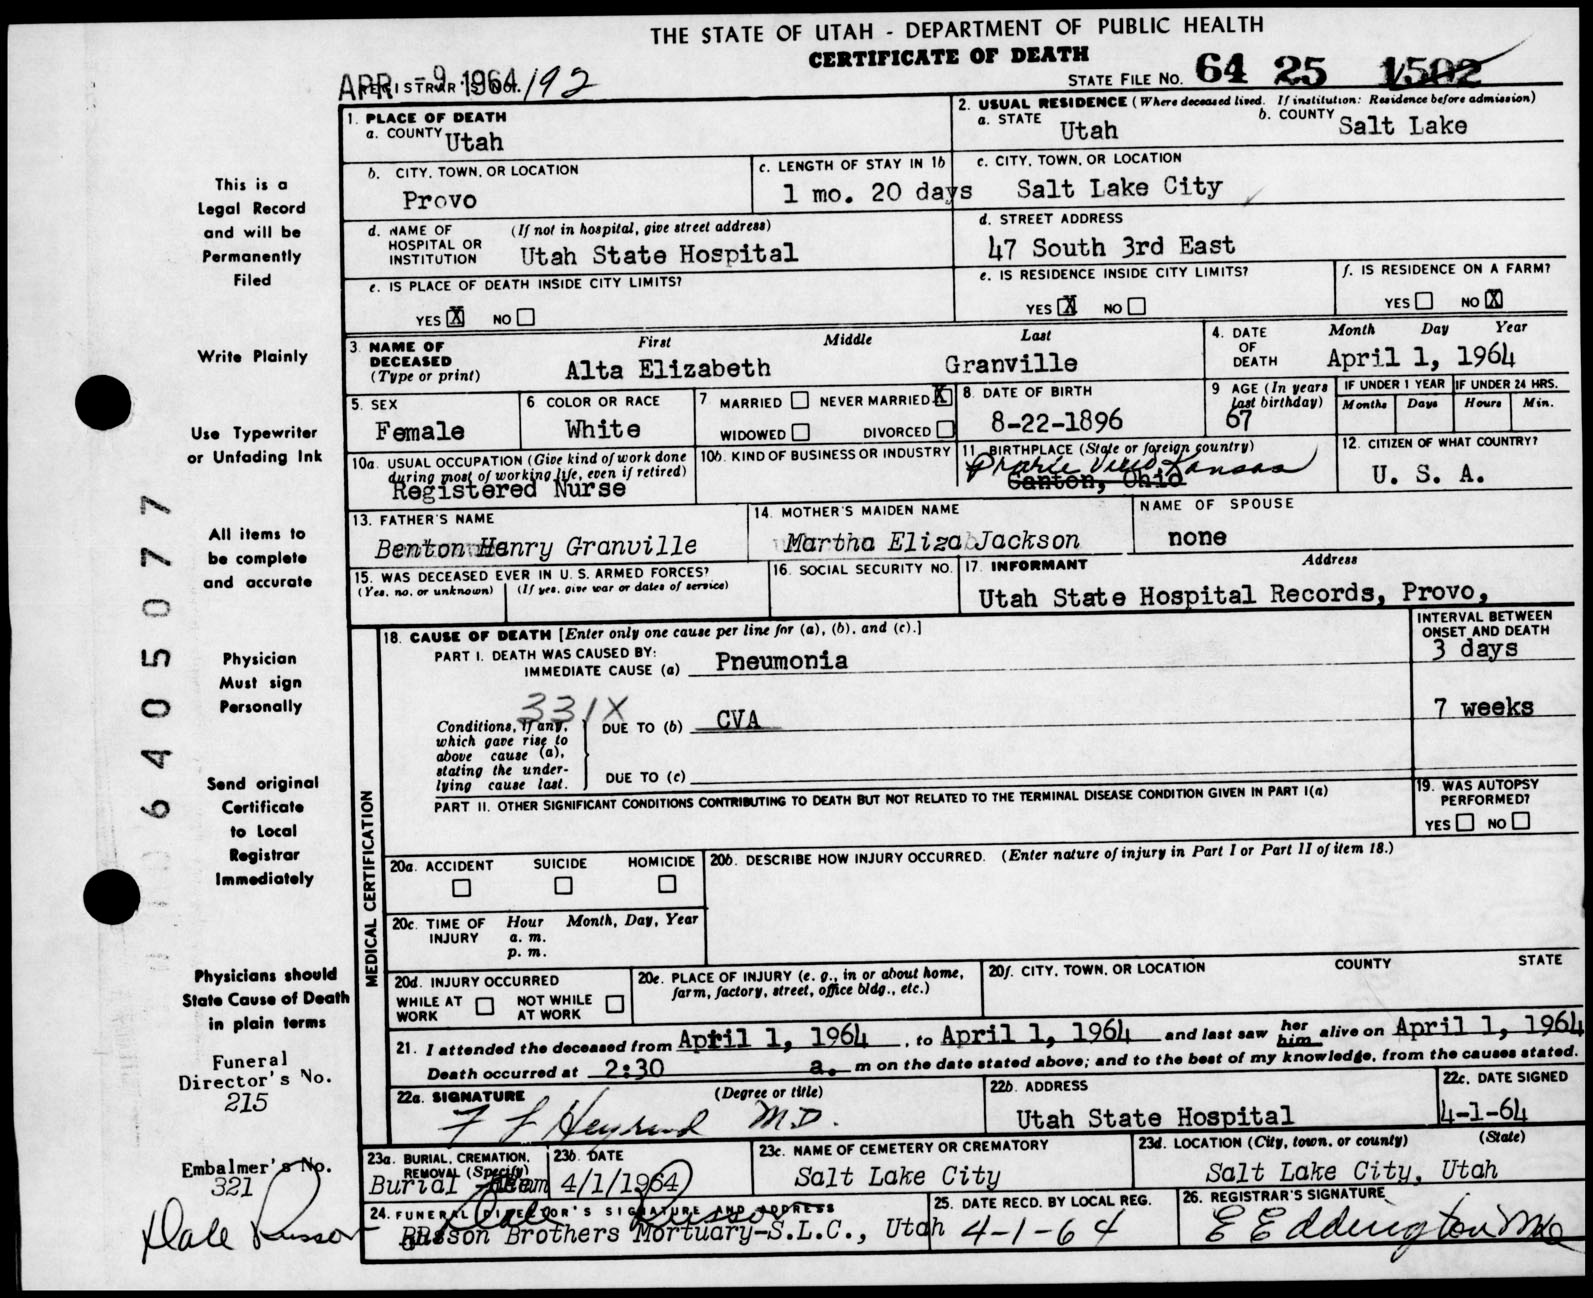 THE STATE OF UTAH - DEPARTMENT OF PUBLIC HEALTH
CERTIFICATE OF DEATH
APR -9 1964
REGISTRAR'S No. 192
STATE FILE NO. 64 25 1502
This is a
Legal Record
and will be
Permanently
Filed
Write Plainly
Use Typewriter
or Unfading Ink
All items to
be complete
and accurate
Physician
Must sign
Personally
Send original
Certificate
to Local
Registrar
Immediately
Physicians should
State Cause of Death
in plain terms
Funeral
Director's No.
215
Embalmer's No.
321
Dale Russon
6405077
1. PLACE OF DEATH
a. COUNTY Utah
2. USUAL RESIDENCE (Where deceased lived. If institution: Residence before admission)
a. STATE Utah
b. COUNTY Salt Lake
b. CITY, TOWN, OR LOCATION
Provo
c. LENGTH OF STAY IN 1b
1 mo. 20 days
c. CITY, TOWN, OR LOCATION
Salt Lake City
d. NAME OF HOSPITAL OR INSTITUTION (If not in hospital, give street address)
Utah State Hospital
d. STREET ADDRESS
47 South 3rd East
e. IS PLACE OF DEATH INSIDE CITY LIMITS?
YES X NO
e. IS RESIDENCE INSIDE CITY LIMITS?
YES X NO
f. IS RESIDENCE ON A FARM?
YES NO X
3. NAME OF DECEASED (Type or print)
First Middle Last
Alta Elizabeth Granville
4. DATE OF DEATH
Month Day Year
April 1, 1964
5. SEX
Female
6 COLOR OR RACE
White
7 MARRIED NEVER MARRIED X
WIDOWED DIVORCED
8. DATE OF BIRTH
8-22-1896
9 AGE (In years last birthday)
67
IF UNDER 1 YEAR IF UNDER 24 HRS.
Months Days Hours Min.
10a. USUAL OCCUPATION (Give kind of work done during most of working life, even if retired)
Registered Nurse
10b. KIND OF BUSINESS OR INDUSTRY
11. BIRTHPLACE (State or foreign country)
Prairie View, Kansas
Canton, Ohio
12. CITIZEN OF WHAT COUNTRY?
U. S. A.
13. FATHER'S NAME
Benton Henry Granville
14. MOTHER'S MAIDEN NAME
Martha Eliza Jackson
NAME OF SPOUSE
none
15. WAS DECEASED EVER IN U. S. ARMED FORCES?
(Yes, no, or unknown) (If yes, give war or dates of service)
16. SOCIAL SECURITY NO.
17. INFORMANT Address
Utah State Hospital Records, Provo,
MEDICAL CERTIFICATION
18. CAUSE OF DEATH [Enter only one cause per line for (a), (b), and (c).]
INTERVAL BETWEEN ONSET AND DEATH
PART I. DEATH WAS CAUSED BY:
IMMEDIATE CAUSE (a) Pneumonia
3 days
331X
Conditions, if any, which gave rise to above cause (a), stating the underlying cause last.
DUE TO (b) CVA
7 weeks
DUE TO (c)
PART II. OTHER SIGNIFICANT CONDITIONS CONTRIBUTING TO DEATH BUT NOT RELATED TO THE TERMINAL DISEASE CONDITION GIVEN IN PART I(a)
19. WAS AUTOPSY PERFORMED?
YES NO
20a. ACCIDENT SUICIDE HOMICIDE
20b. DESCRIBE HOW INJURY OCCURRED. (Enter nature of injury in Part I or Part II of item 18.)
20c. TIME OF INJURY Hour Month, Day, Year
a. m.
p. m.
20d. INJURY OCCURRED
WHILE AT WORK NOT WHILE AT WORK
20e. PLACE OF INJURY (e. g., in or about home, farm, factory, street, office bldg., etc.)
20f. CITY, TOWN, OR LOCATION COUNTY STATE
21. I attended the deceased from April 1, 1964, to April 1, 1964 and last saw her him alive on April 1, 1964
Death occurred at 2:30 a. m on the date stated above; and to the best of my knowledge, from the causes stated.
22a. SIGNATURE (Degree or title)
M.D.
22b. ADDRESS
Utah State Hospital
22c. DATE SIGNED
4-1-64
23a. BURIAL, CREMATION, REMOVAL (Specify)
Burial
23b. DATE
4/1/1964
23c. NAME OF CEMETERY OR CREMATORY
Salt Lake City
23d. LOCATION (City, town, or county) (State)
Salt Lake City, Utah
24. FUNERAL DIRECTOR'S SIGNATURE AND ADDRESS
Dale Russon
Russon Brothers Mortuary-S.L.C., Utah
25. DATE RECD. BY LOCAL REG.
4-1-64
26. REGISTRAR'S SIGNATURE
E Eddington